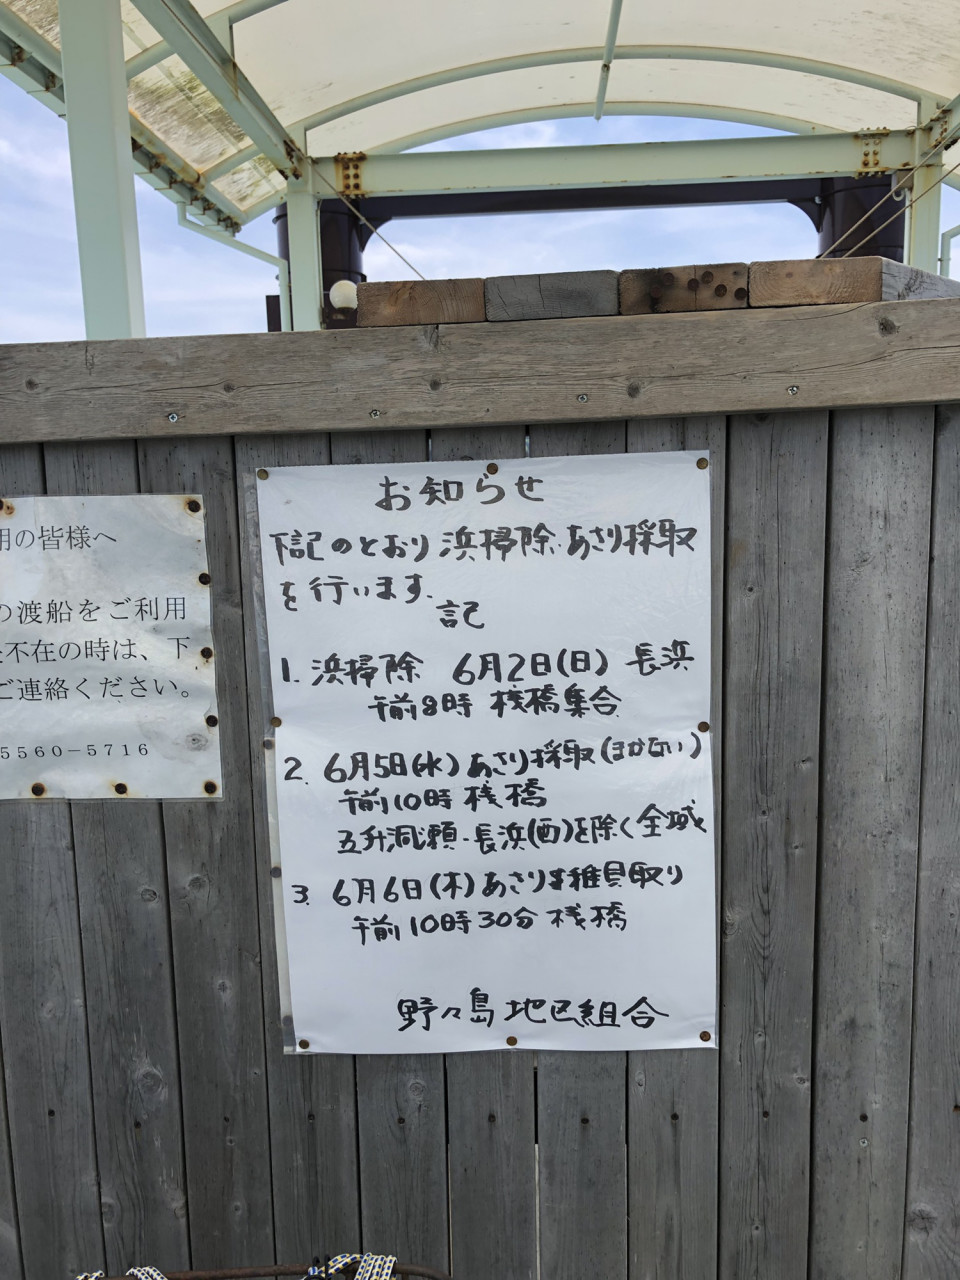 用の皆様へ
の渡船をご利用
不在の時は、下
ご連絡ください。
5560-5716
お知らせ
下記のとおり浜掃除.あさり採取
を行います.
記
1. 浜掃除 6月2日(日) 長浜
午前8時 桟橋集合
2. 6月5日(水)あさり採取(まかない)
午前10時 桟橋
五升洞瀬・長浜(西)を除く全域
3. 6月6日(木)あさり稚貝取り
午前10時30分 桟橋
野々島 地区組合